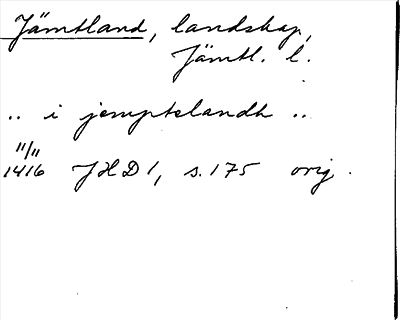 Jämtland, landskap,
Jämtl. l.
.. i jemptelandh ..
11/11
1416 JHD 1, s. 175 orig.